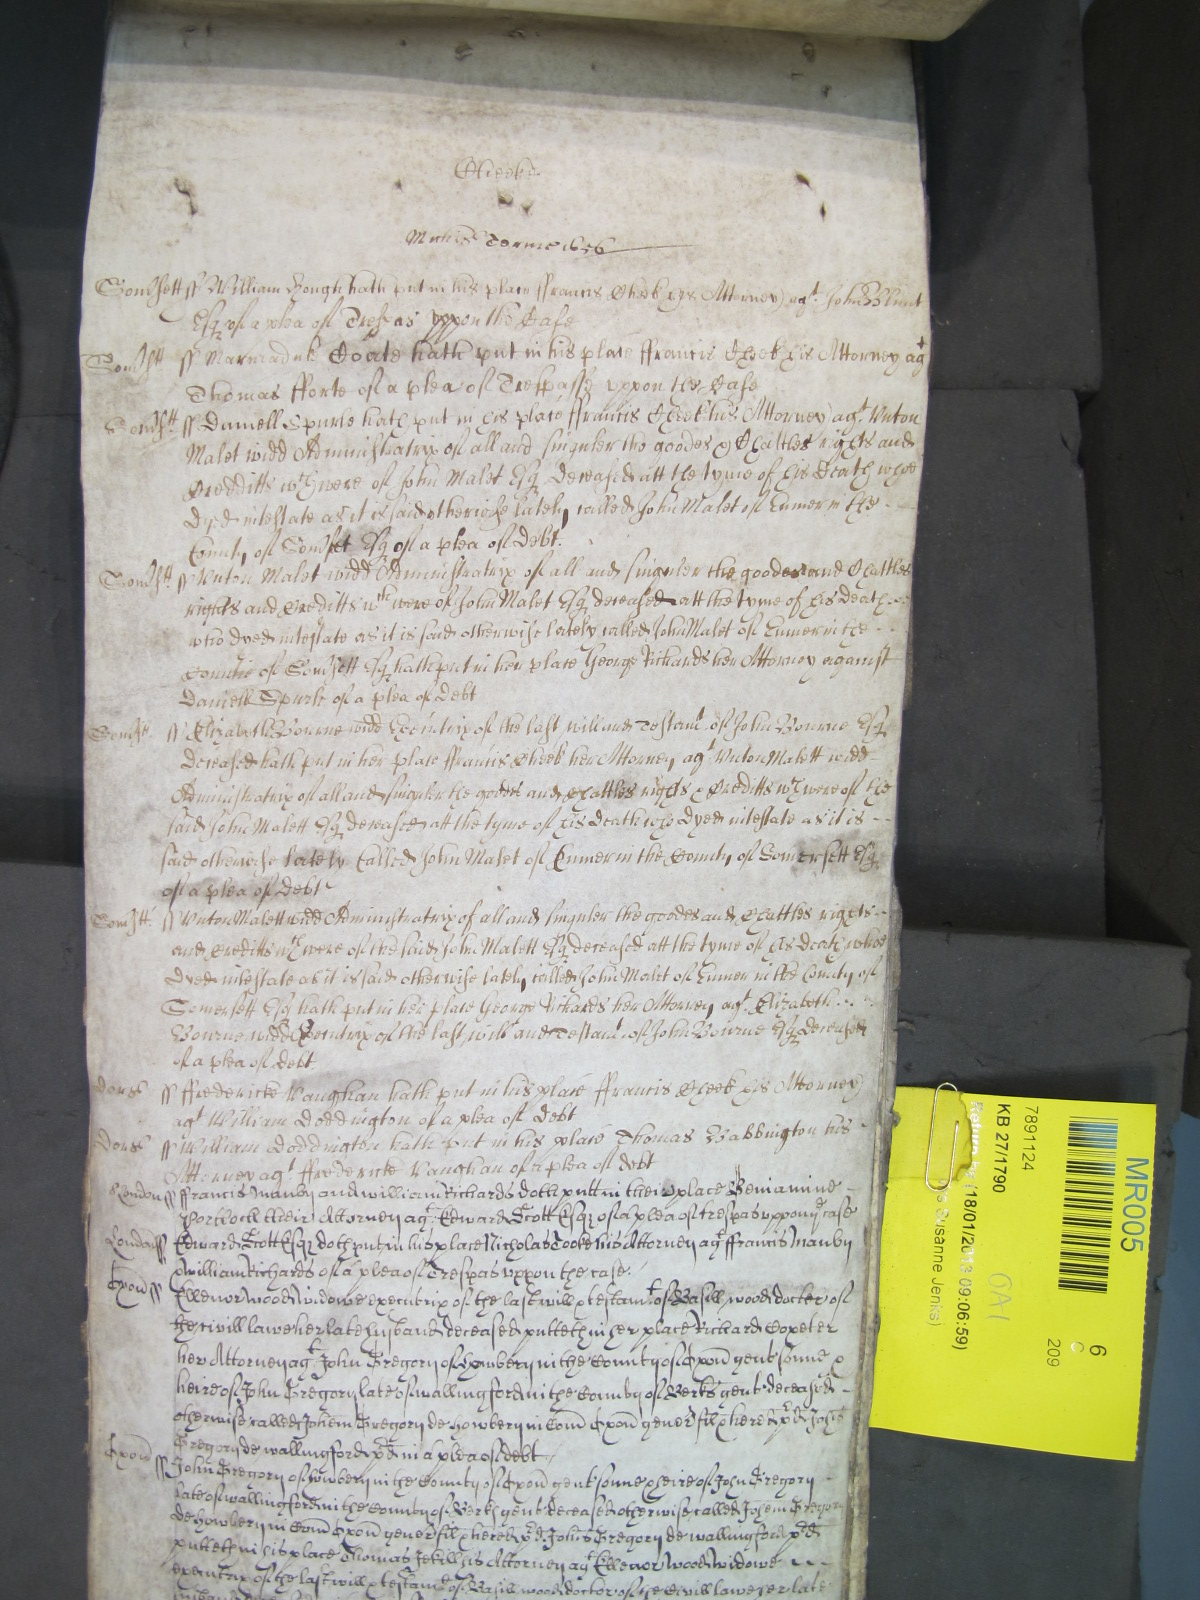 Cheeke
Michis Terme 1656
Somsett ss William Gough hath put in his place ffrancis Cheek his Attorney agt John Blunt
Esqr of a plea of Trespas uppon the Case
Somsett ss Marmaduk Coate hath put in his place ffrancis Cheek his Attorney agt
Thomas fforte of a plea of Trespasse uppon the Case
Somstt ss Daniell Spurle hath put in his place ffrancis Cheek his Attorney agt Unton
Malet widd Administratrix of all and singuler the goodes & Chattles rights and
Credditts wch were of John Malet Esqr deceased att the tyme of his death whoe
dyed intestate as it is said otherwise lately called John Malet of Enmer in the
County of Somset Esqr of a plea of debt.
Somstt ss Unton Malet widd Administratrix of all and singuler the goodes and Chattles
rights and Creditts wch were of John Malet Esqr deceased att the tyme of his death
who dyed intestate as it is said otherwise lately called John Malet of Enmer in the
Countie of Somsett Esqr hath put in her place George Richards her Attorney against
Daniell Spurle of a plea of debt
Somstt ss Elizabeth Bourne widd Executrix of the last will and Testamt of John Bourne Esqr
deceased hath put in her place ffrancis Cheek her Attorney agt Unton Malett widd
Administratrix of all and singuler the goodes and Chattles rights & Creditts wch were of the
said John Malett Esqr deceased att the tyme of his death who dyed intestate as it is
said otherwise lately Called John Malet of Enmer in the County of Somersett Esqr
of a plea of debt
Somstt ss Unton Malett widd Administratrix of all and singuler the goodes and Chattles rights
and Creditts wch were of the said John Malett Esqr deceased att the tyme of his death whoe
dyed intestate as it is said otherwise lately called John Malet of Enmer in the County of
Somersett Esqr hath put in her place George Richards her Attorney agt Elizabeth
Bourne widd Executrix of the last will and Testamt of John Bourne Esqr deceased
of a plea of debt
Dors ss ffredericke Vaughan hath put in his place ffrancis Cheek his Attorney
agt William Doddington of a plea of debt
Dors ss William Doddington hath put in his place Thomas Babbington his
Attorney agt ffredericke Vaughan of a plea of debt
London ss ffrancis Manby and William Richards doth putt in their place Beniamine
Portlock their Attorney agt Edward Scott Esqr of a plea of trespas uppon ye case
London ss Edward Scott Esqr doth put in his place Nicholas Cooke his Attorney agt ffrancis Manby
& William Richards of a plea of Trespas uppon the case.
Oxon ss Ellenor Wood Widowe executrix of the last will & testamt of Basill wood doctor of
the civill lawe her late husband deceased putteth in her place Richard Copeter
her Attorney agt John Gregory of howbery in the County of Oxon gent sonne &
heire of John Gregory late of wallingford in the County of Berks gent deceased
otherwise called Johem Gregory de howbery in Com Oxon gener fil & hered pd Johis
Gregory de wallingford pd in a plea of debt
Oxon ss John Gregory of howbery in the County of Oxon gent sonne & heire of John Gregory
late of wallingford in the County of Berks gent deceased otherwise called Johem Gregory
de howbery in Com Oxon gener fil & hered pd Johis Gregory de wallingford pd
putteth in his place Thomas Jekill his Attorney agt Ellenor Wood Widowe
executrix of the last will & testamt of Basill wood doctor of the Civill lawe her late
MR005
6
C
209
7891124
KB 27/1790
(18/01/2013 09:06:59)
Susanne Jenks)